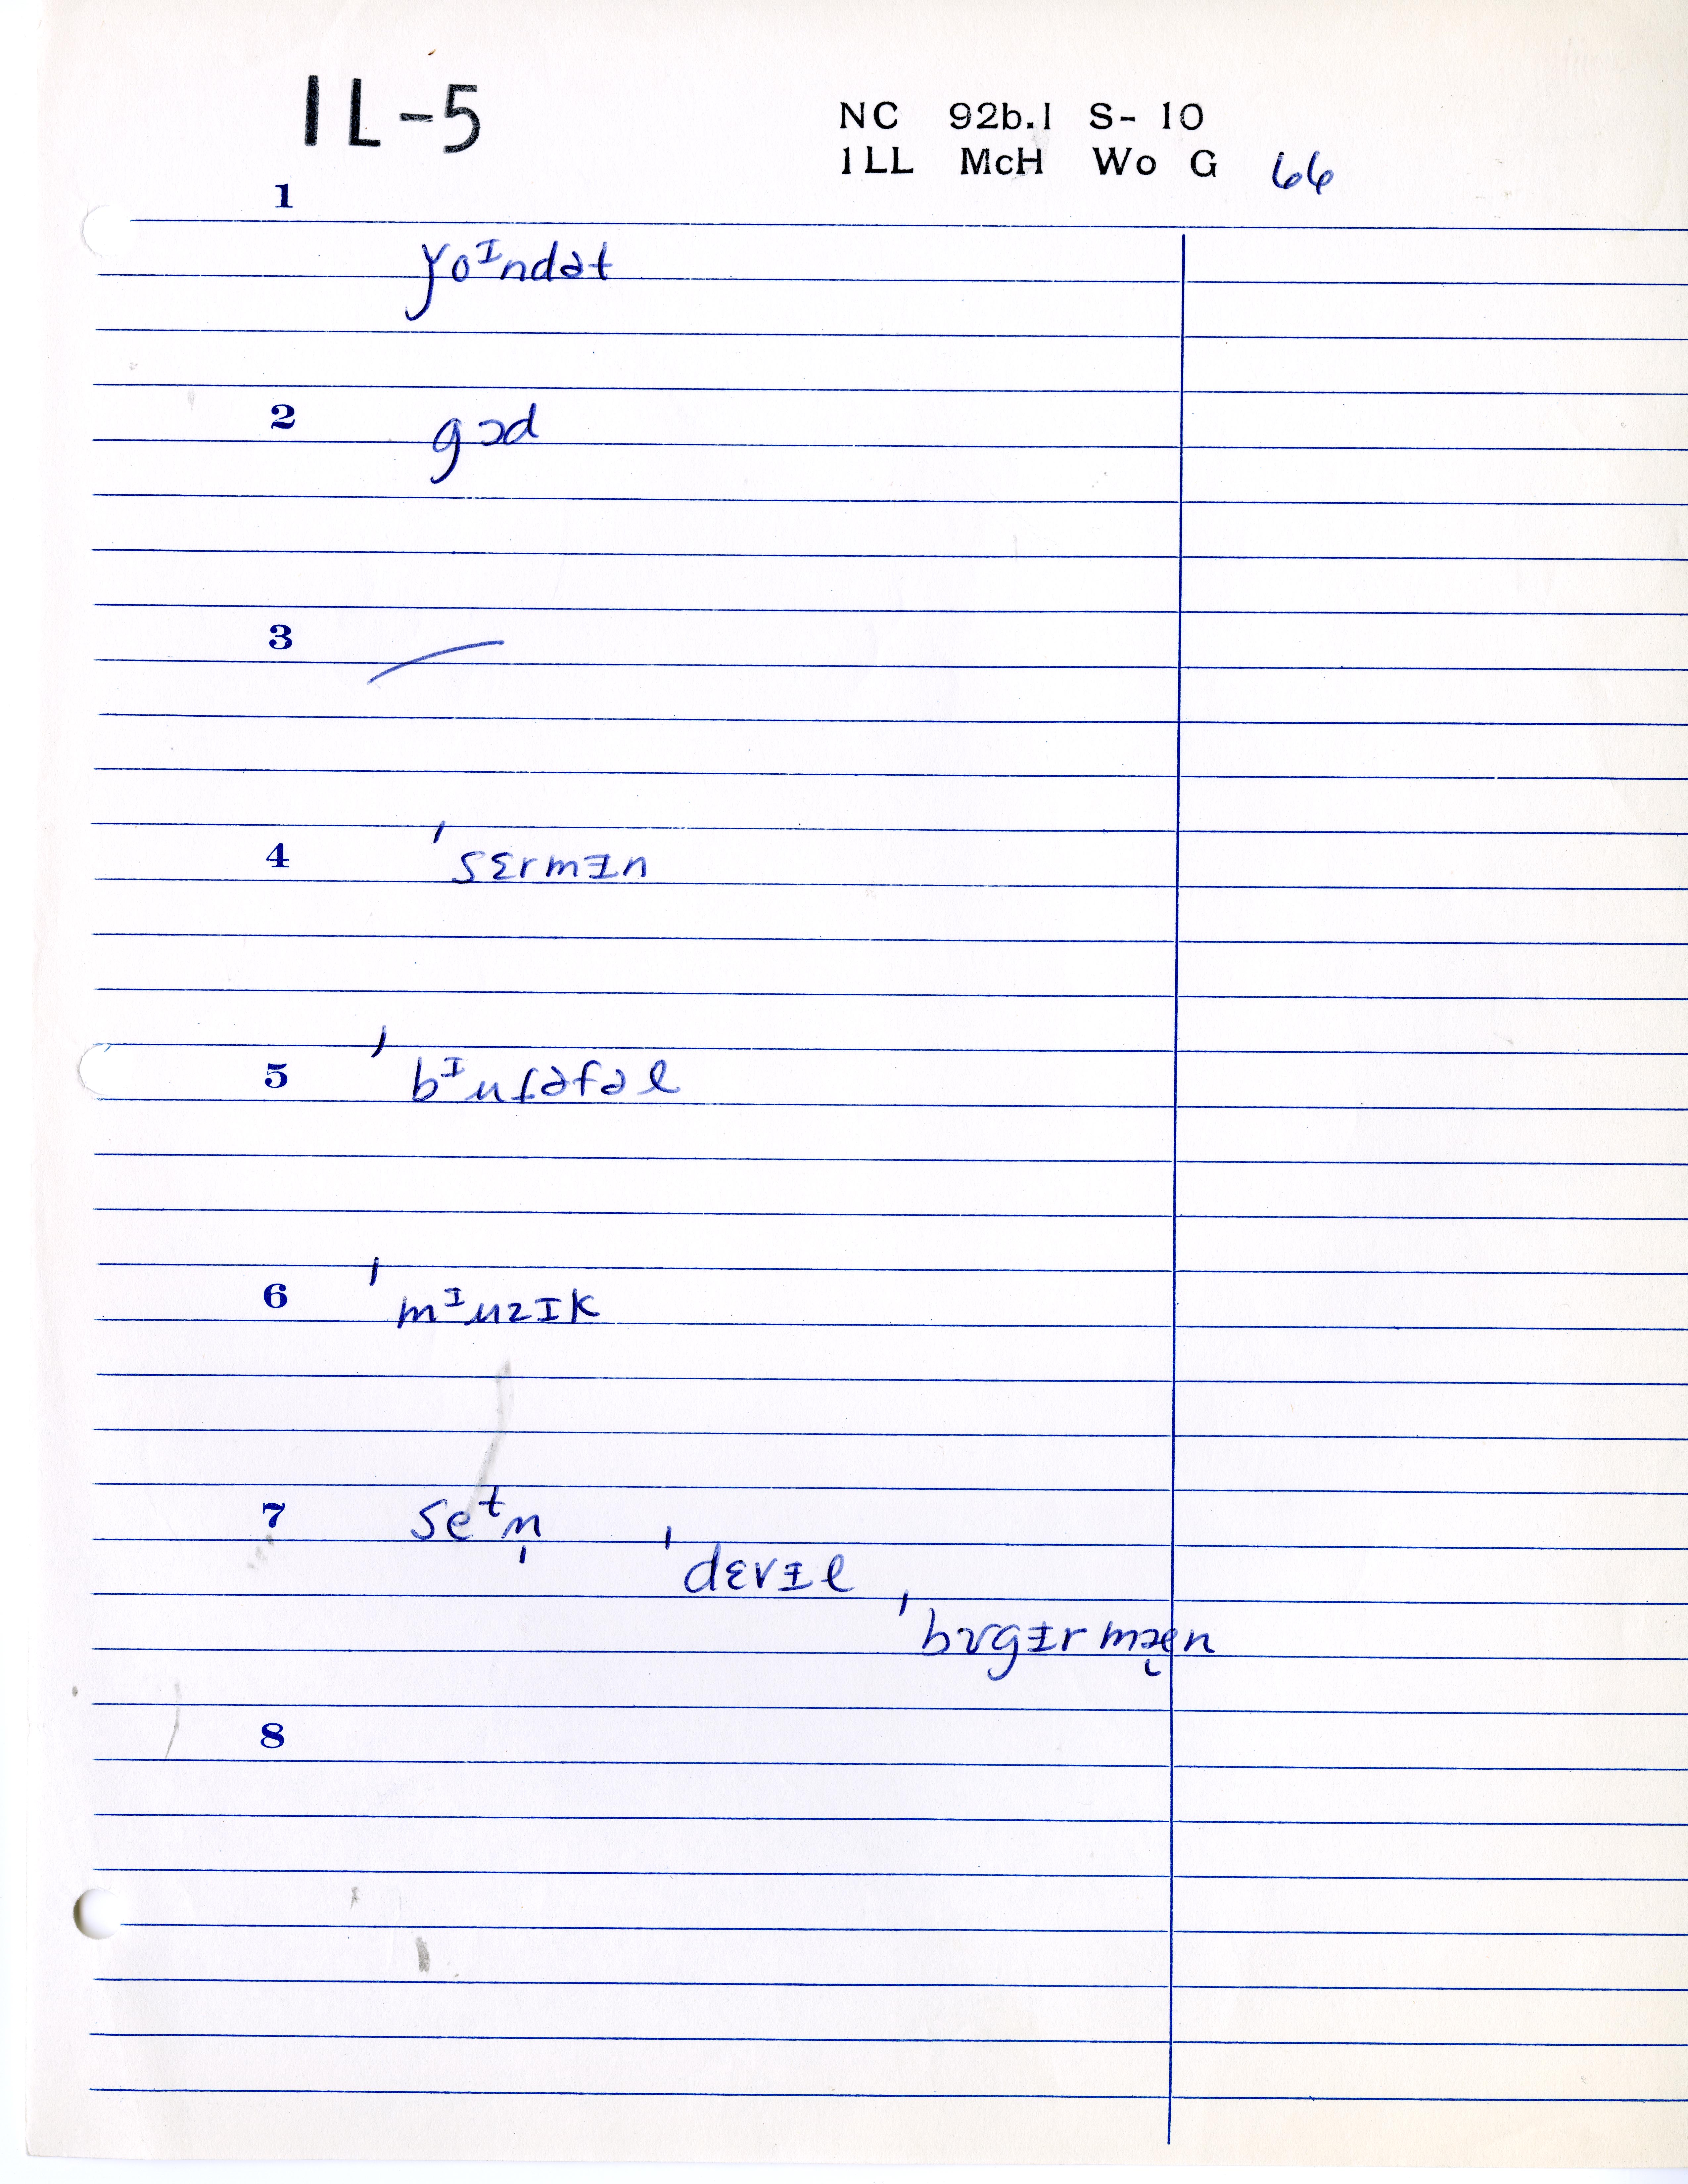 IL-5
NC 92b.1 S- 10
ILL McH Wo G 66
1
ǰoᶦndət
2
gɔd
3
4
ˈsɛrmɪn
5
ˈbᶦuɾəfəl
6
ˈmᶦuzɪk
7 seᵗn̩
ˈdɛvɪl
ˈbʊgɪrmæn
8